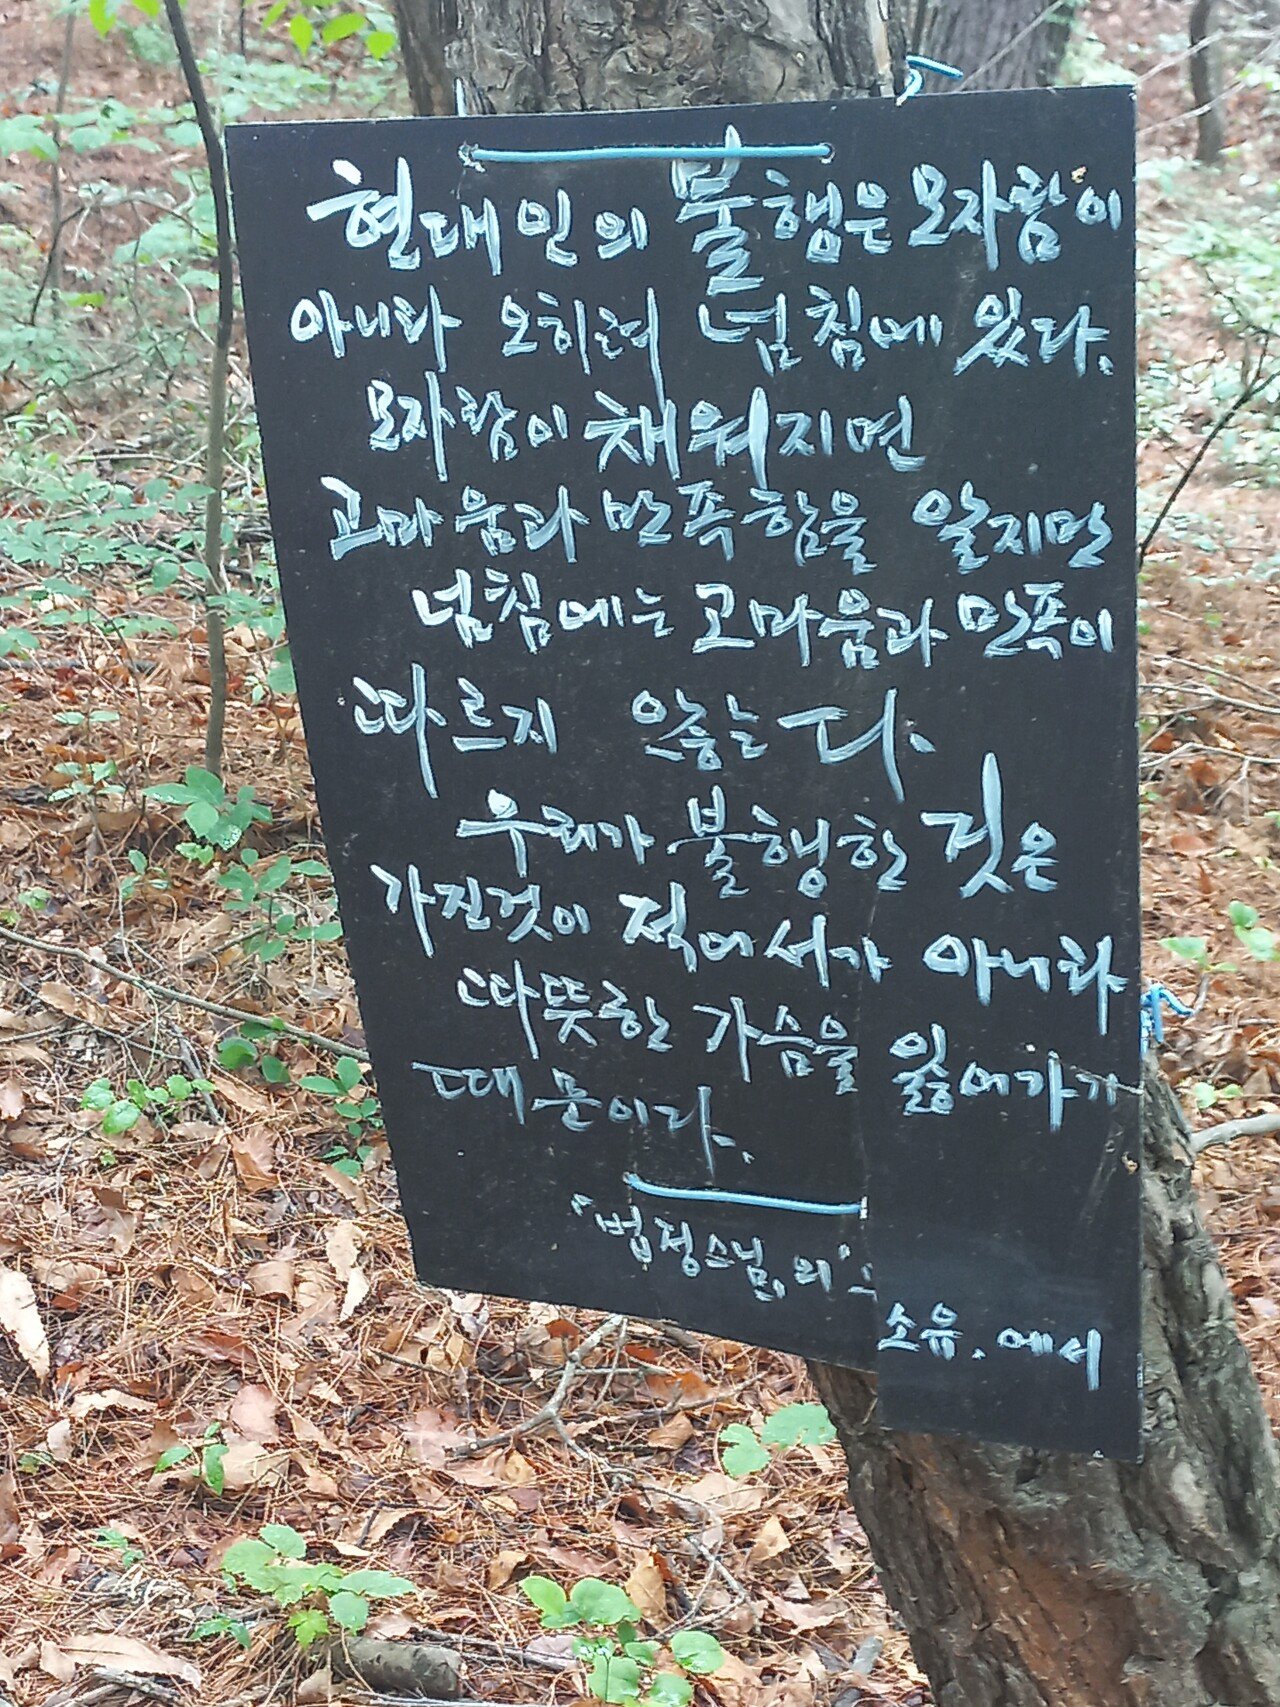 현대인의 불행은 모자람이
아니라 오히려 넘침에 있다.
모자람이 채워지면
고마움과 만족함을 알지만
넘침에는 고마움과 만족이
따르지 않는다.
우리가 불행한 것은
가진것이 적어서가 아니라
따뜻한 가슴을 잃어가기
때문이다.
'법정스님, 의'
소유, 에서